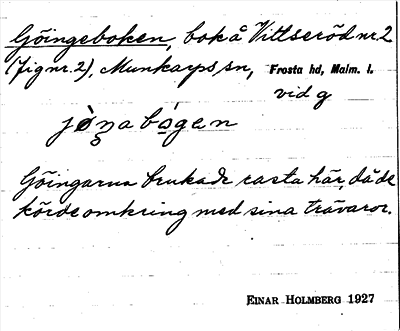 Göingeboken, bok å Vittseröd nr 2
(Jignr. 2), Munkarps sn, Frosta hd, Malm. l.
vid g
jøṉa bo̱gen
Göingarna brukade rasta här, då de
körde omkring med sina trävaror.
EINAR HOLMBERG 1927